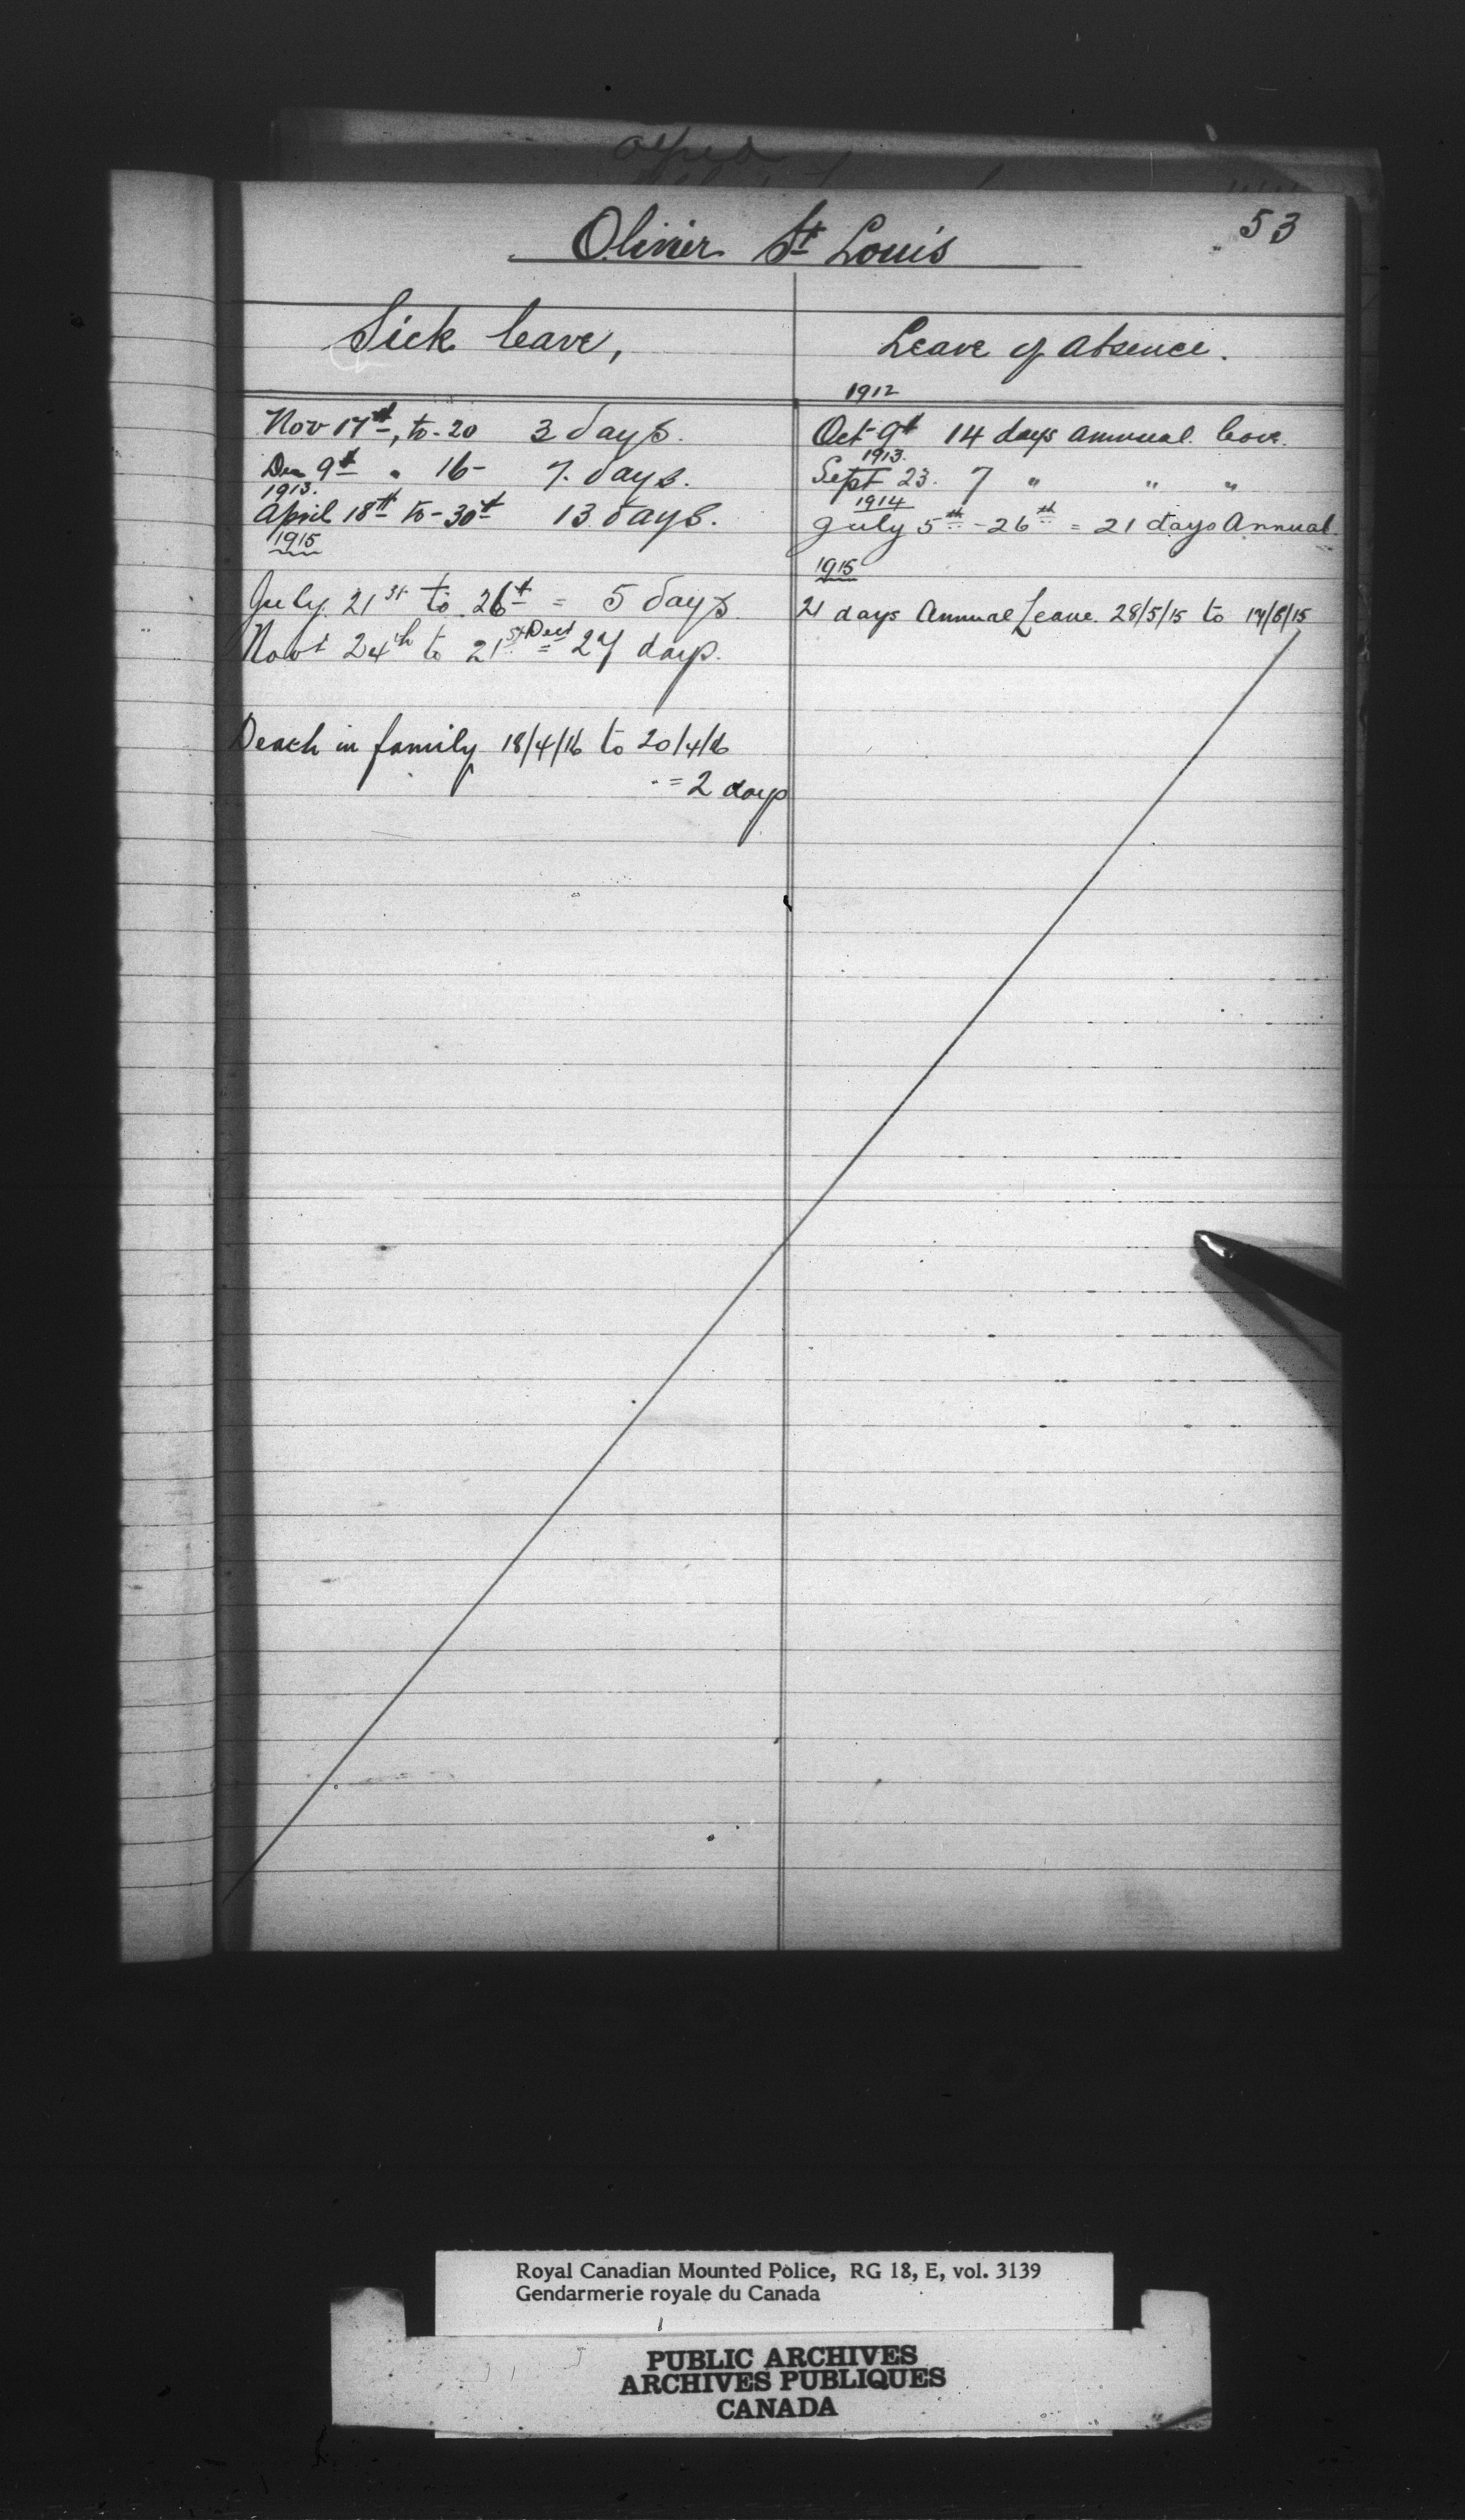 53
Olivier St Louis
Sick leave,
Nov 17th, to 20 3 days.
Dec 9th " 16 - 7. days.
1913.
April 18th to - 30th 13 days.
1915
July 21st to 26th = 5 days
Novr 24th to 21st Decr = 27 days.
Death in family 18/4/16 to 20/4/16
= 2 days
Leave of absence.
1912
Oct 9th 14 days annual leave.
1913.
Sept 23. 7 " " "
1914
July 5th - 26th = 21 days Annual.
1915
21 days Annual Leave. 28/5/15 to 17/6/15
Royal Canadian Mounted Police, RG 18, E, vol. 3139
Gendarmerie royale du Canada
PUBLIC ARCHIVES
ARCHIVES PUBLIQUES
CANADA